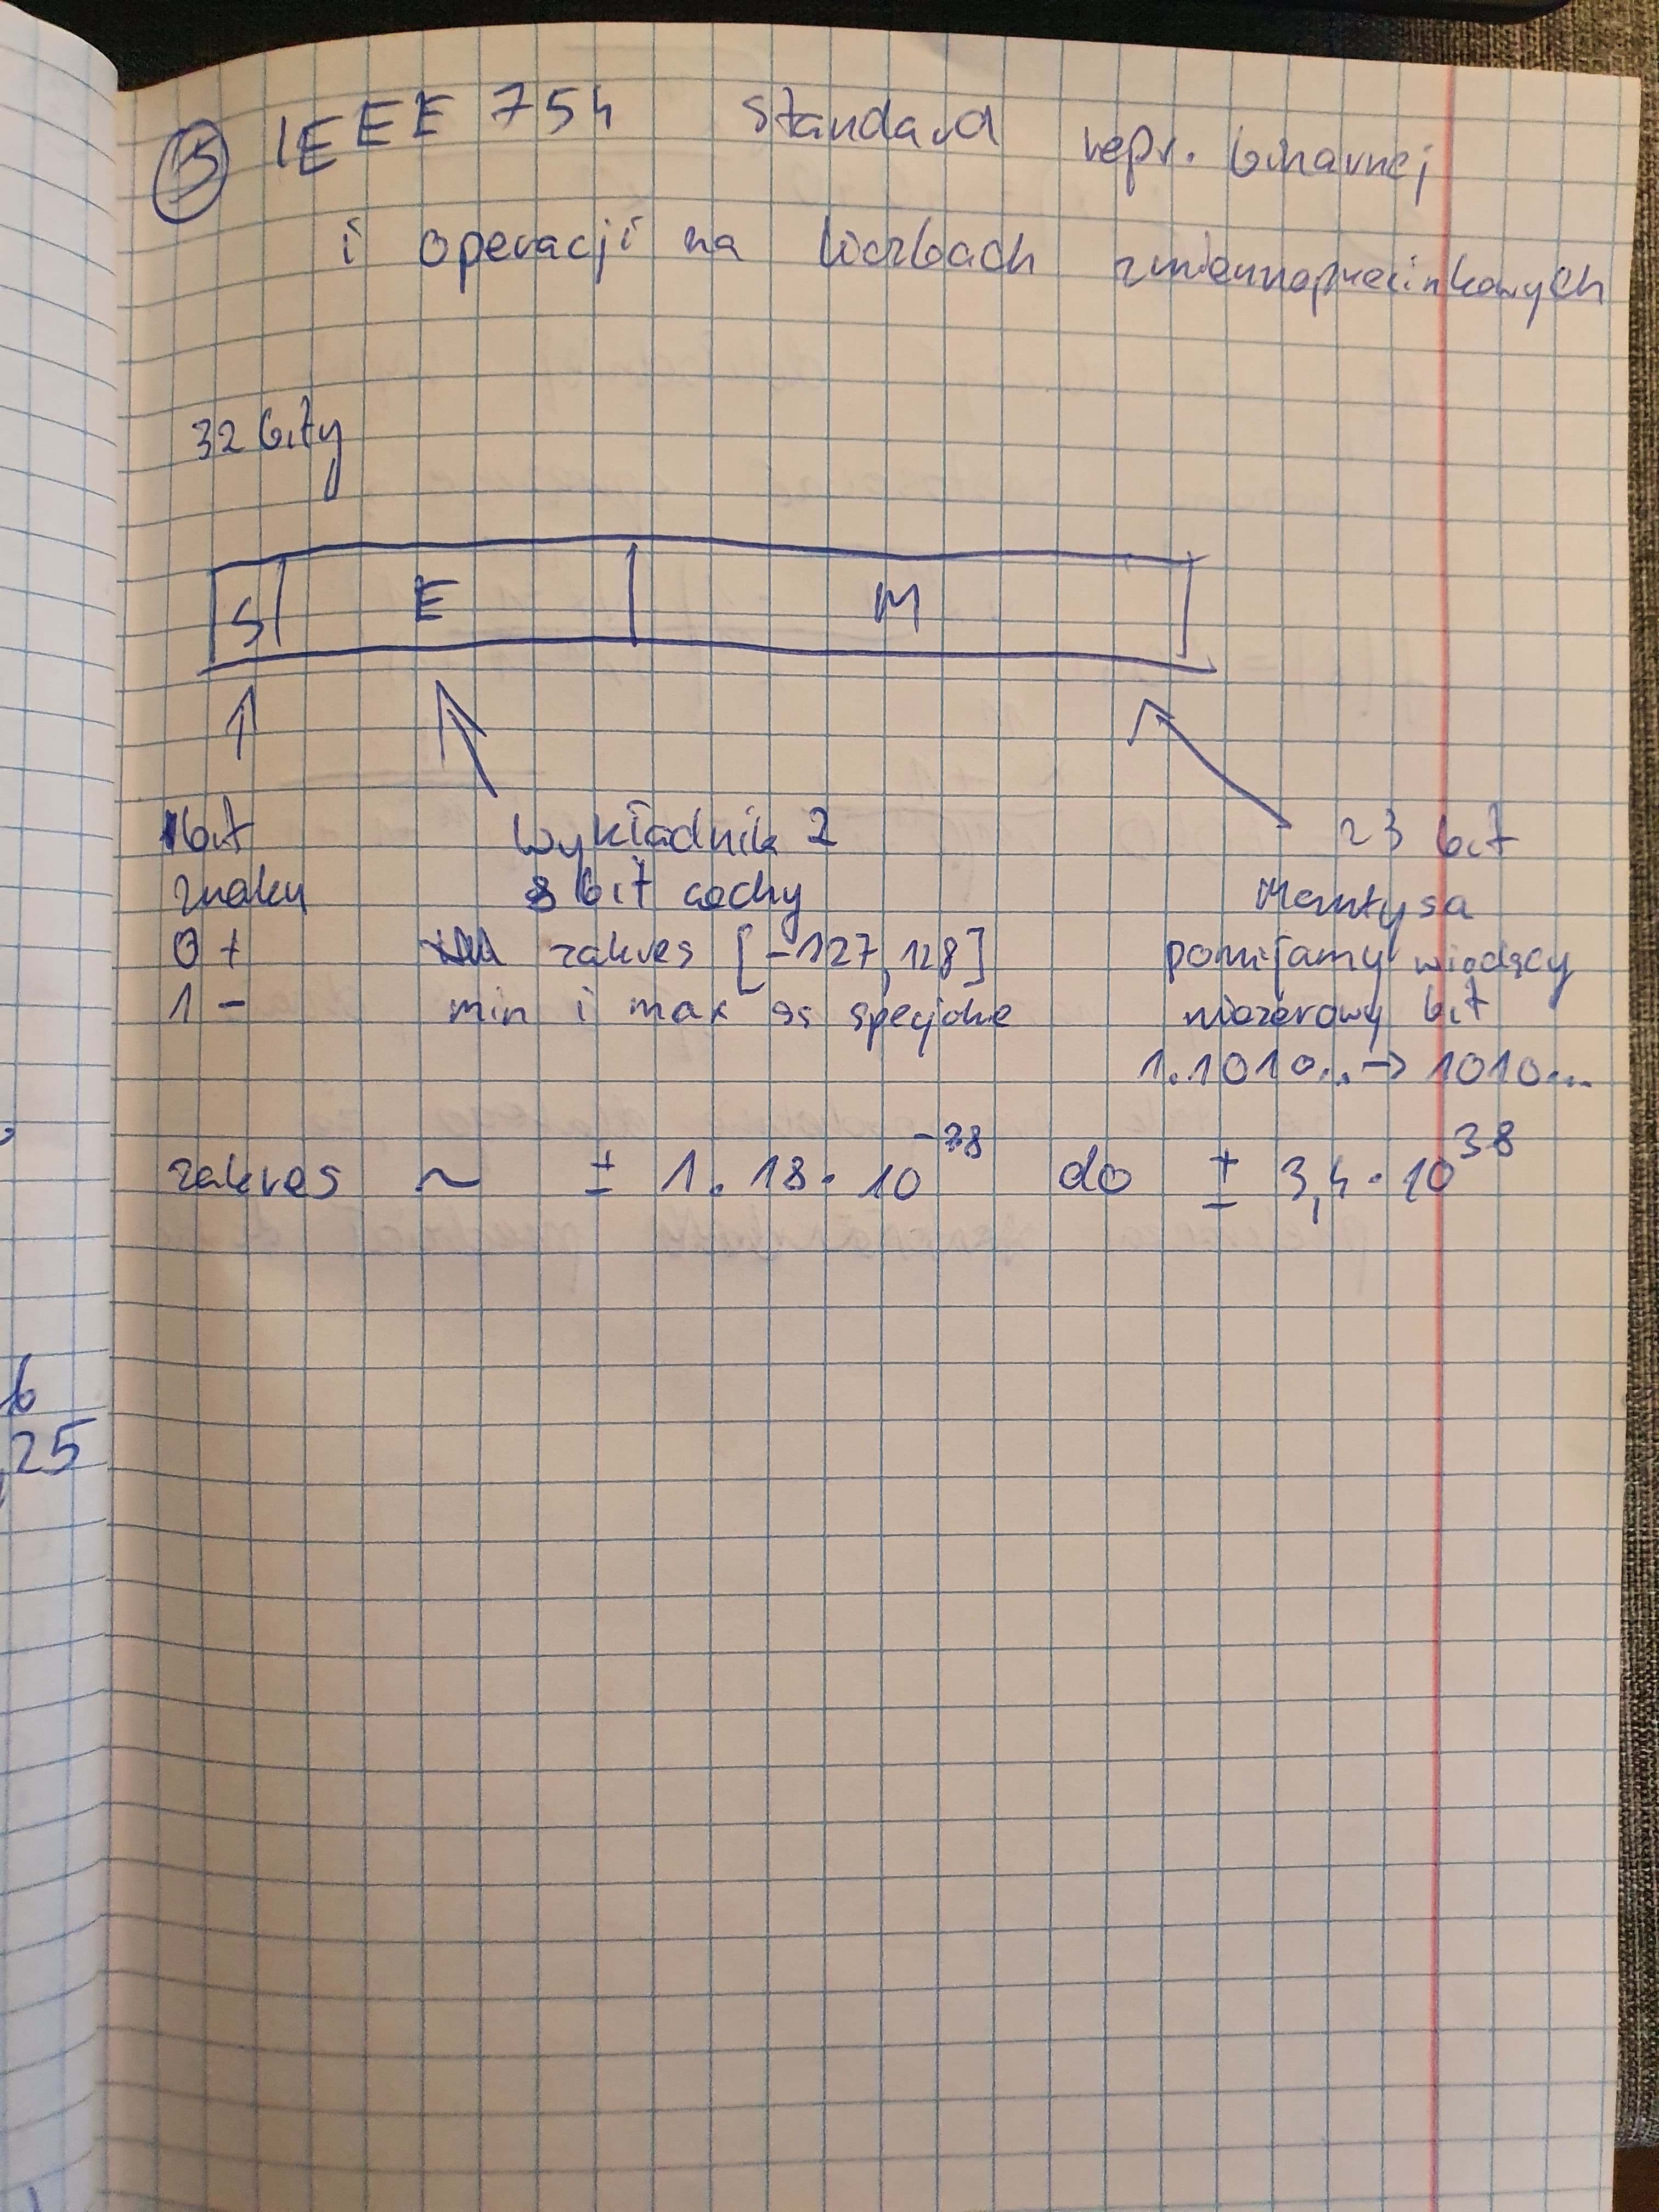 15 IEEE 754 standard repr. binarnej
i operacji na liczbach zmiennoprzecinkowych
32 bity
S E M
1 bit
znaku
0 +
1 -
wykładnik 2
8 bit cechy
zakres [-127, 128]
min i max są specjalne
23 bit
Mantysa
pomijamy wiodący
niezerowy bit
1.1010... → 1010...
zakres ~ ± 1.18 · 10^-38 do ± 3,4 · 10^38
6
,25